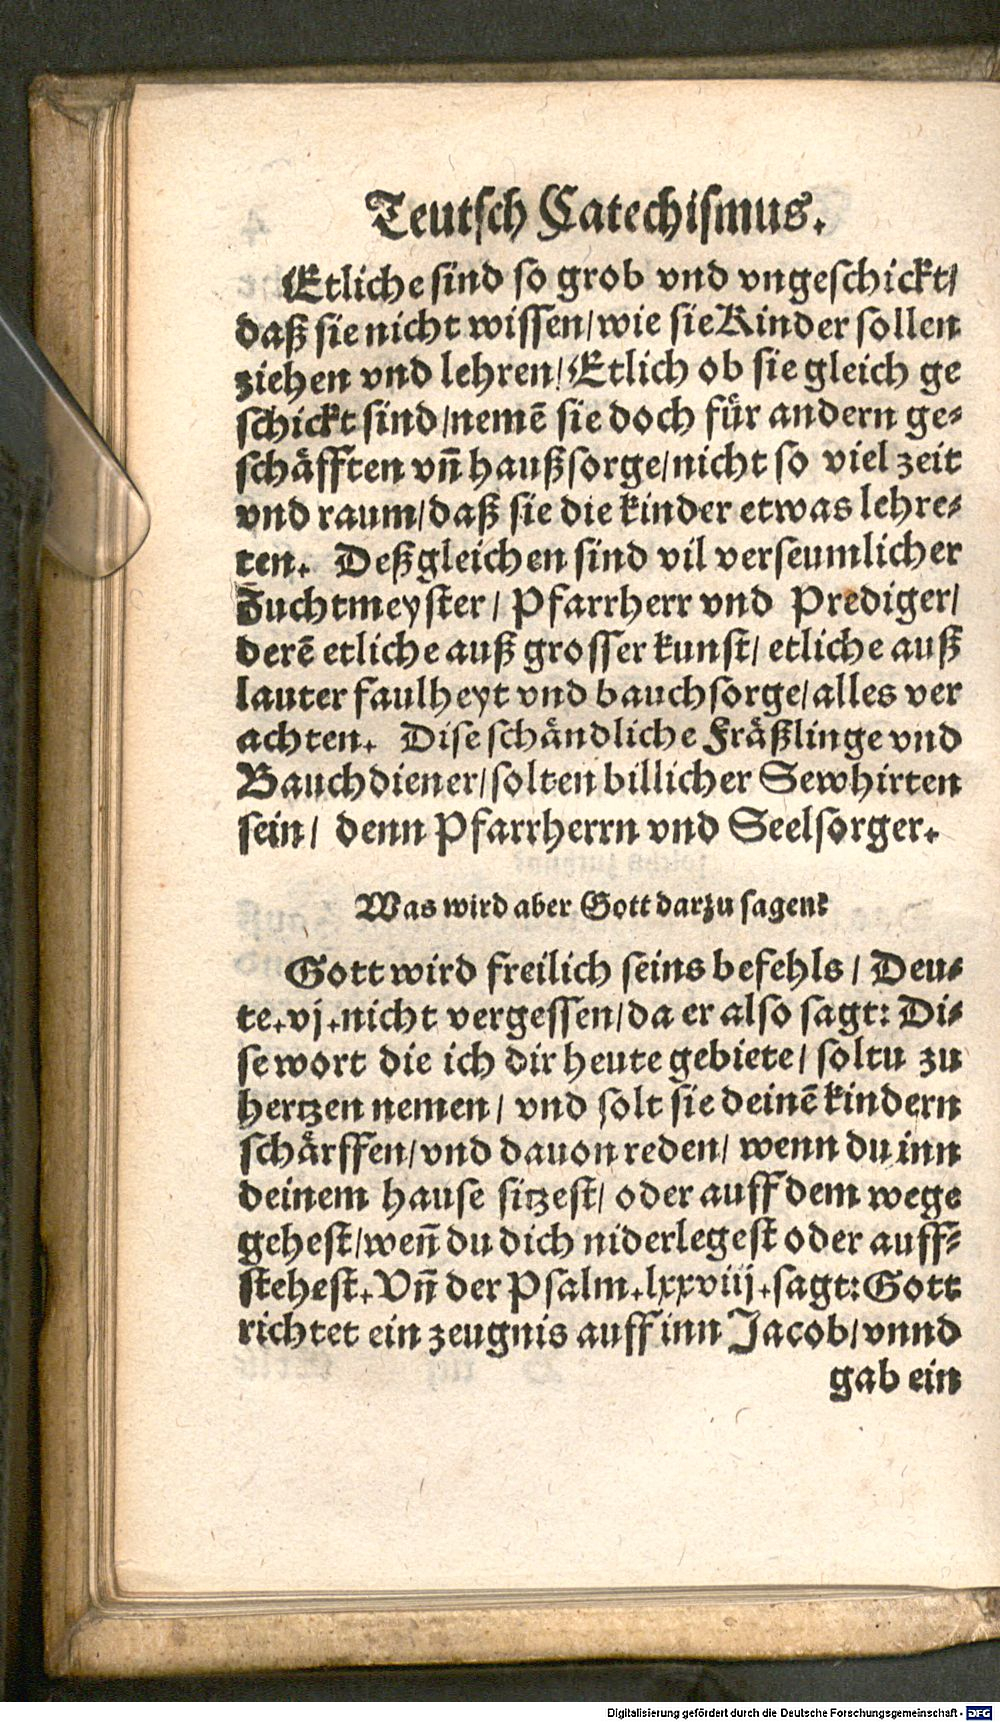 Teutsch Catechismus.
Etliche sind so grob vnd vngeschickt/
daß sie nicht wissen/wie sie Kinder sollen
ziehen vnd lehren/Etlich ob sie gleich ge
schickt sind/nemẽ sie doch fuͤr andern ge⸗
schaͤfften vñ haußsorge/nicht so viel zeit
vnd raum/daß sie die kinder etwas lehre⸗
ten. Deßgleichen sind vil verseumlicher
Zuchtmeyster/ Pfarrherr vnd Prediger/
derẽ etliche auß grosser kunst/ etliche auß
lauter faulheyt vnd bauchsorge/alles ver
achten. Dise schaͤndliche Fraͤßlinge vnd
Bauchdiener/solten billicher Sewhirten
sein/ denn Pfarrherrn vnd Seelsorger.
Was wird aber Gott darzu sagen?
Gott wird freilich seins befehls/ Deu⸗
te.vj.nicht vergessen/da er also sagt: Di⸗
se wort die ich dir heute gebiete/ soltu zu
hertzen nemen/ vnd solt sie deinẽ kindern
schaͤrffen/vnd dauon reden/ wenn du inn
deinem hause sitzest/ oder auff dem wege
gehest/weñ du dich niderlegest oder auff⸗
stehest. Vñ der Psalm.lxxviij.sagt: Gott
richtet ein zeugnis auff inn Jacob/vnnd
gab ein
Digitalisierung gefördert durch die Deutsche Forschungsgemeinschaft - DFG